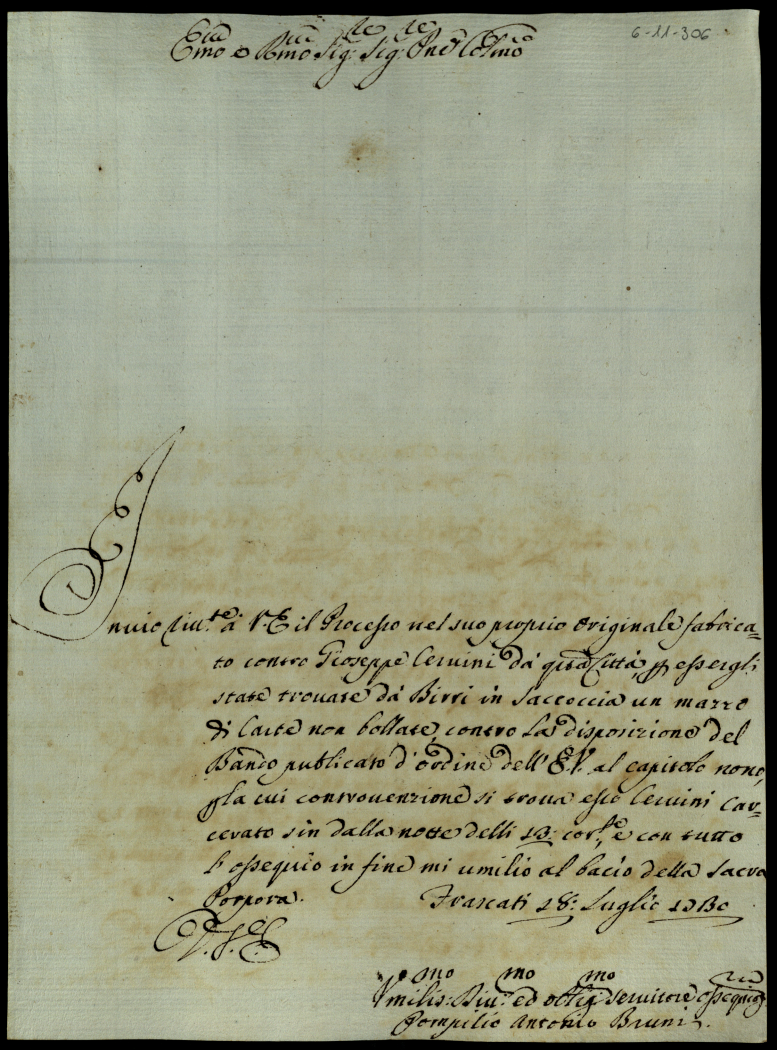 6-11-306
E.mo e R.mo Sig.re Sig.re Pne Col.mo
Invio riv.te à V.E. il Processo nel suo proprio originale fabrica-
to contro Gioseppe Cervini dà q.sta Città, p essergli
state trovate dà Birri in saccoccia un mazzo
di Carte non bollate, contro la disposizione del
Bando publicato d'ordine dell'E.V. al capitolo nono,
p la cui controvenzione si trova esso Cervini Car-
cerato sin dalla notte delli 13: cor.te, e con tutto
l'ossequio in fine mi umilio al bacio della Sacra
Porpora. Frascati 18: Luglio
Umilis.mo Div.mo ed oblig.mo servitore osseq.mo
Pompilio Antonio Bruni